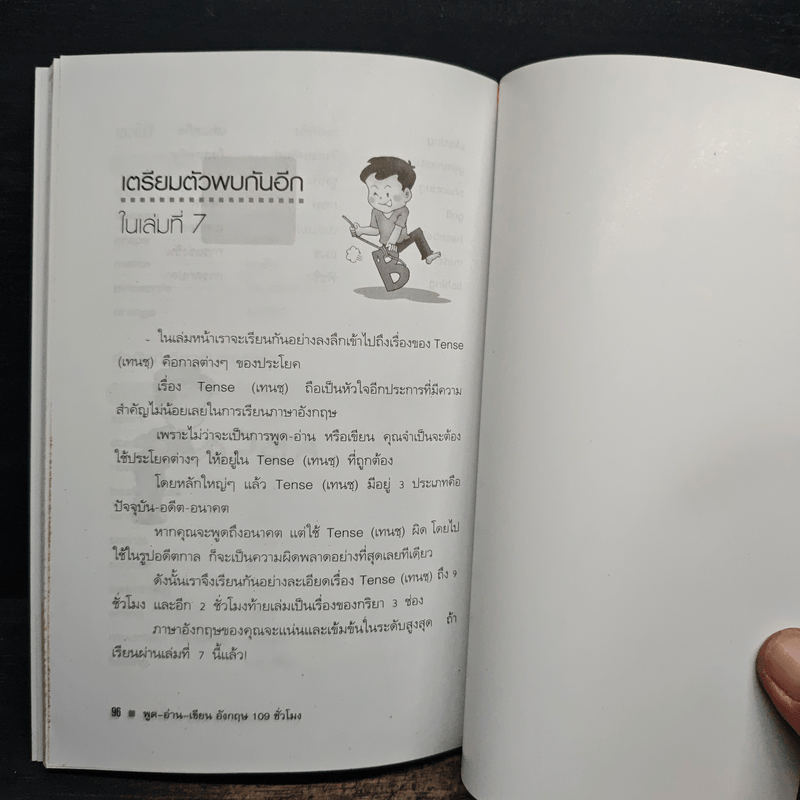 เตรียมตัวพบกันอีก
ในเล่มที่ 7
B
- ในเล่มหน้าเราจะเรียนกันอย่างลงลึกเข้าไปถึงเรื่องของ Tense
(เทนซฺ) คือกาลต่างๆ ของประโยค
เรื่อง Tense (เทนซฺ) ถือเป็นหัวใจอีกประการที่มีความ
สำคัญไม่น้อยเลยในการเรียนภาษาอังกฤษ
เพราะไม่ว่าจะเป็นการพูด-อ่าน หรือเขียน คุณจำเป็นจะต้อง
ใช้ประโยคต่างๆ ให้อยู่ใน Tense (เทนซฺ) ที่ถูกต้อง
โดยหลักใหญ่ๆ แล้ว Tense (เทนซฺ) มีอยู่ 3 ประเภทคือ
ปัจจุบัน-อดีต-อนาคต
หากคุณจะพูดถึงอนาคต แต่ใช้ Tense (เทนซฺ) ผิด โดยไป
ใช้ในรูปอดีตกาล ก็จะเป็นความผิดพลาดอย่างที่สุดเลยทีเดียว
ดังนั้นเราจึงเรียนกันอย่างละเอียดเรื่อง Tense (เทนซฺ) ถึง 9
ชั่วโมง และอีก 2 ชั่วโมงท้ายเล่มเป็นเรื่องของกริยา 3 ช่อง
ภาษาอังกฤษของคุณจะแน่นและเข้มข้นในระดับสูงสุด ถ้า
เรียนผ่านเล่มที่ 7 นี้แล้ว!
96 ■ พูด-อ่าน-เขียน อังกฤษ 109 ชั่วโมง